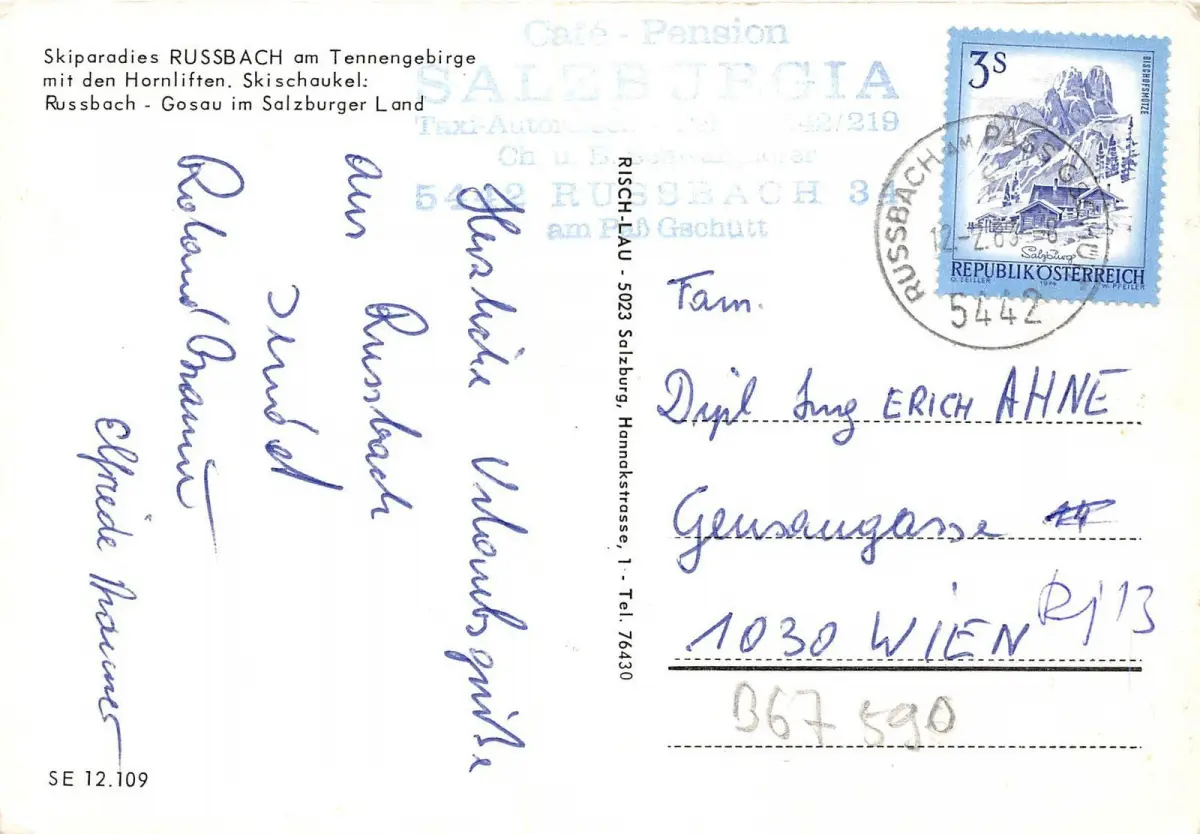 Skiparadies RUSSBACH am Tennengebirge
mit den Hornliften. Skischaukel:
Russbach - Gosau im Salzburger Land
Café - Pension
SALZBURGIA
42/219
Ch u. E.
5442 RUSSBACH 34
am Paß Gschütt
3 S
BISCHOFSMÜTZE
Salzburg
REPUBLIK ÖSTERREICH
O. ZEILLER 1974 W. PFEILER
RUSSBACH AM PASS GSCHÜTT
12.-2.83-8
5442
Herzliche Urlaubsgrüße
aus Russbach
sendet
Roland
Elfriede
RISCH-LAU - 5023 Salzburg, Hannakstrasse, 1 - Tel. 76430
Fam.
Dipl Ing ERICH AHNE
Geusaugasse
1030 WIEN
B67 590
SE 12.109